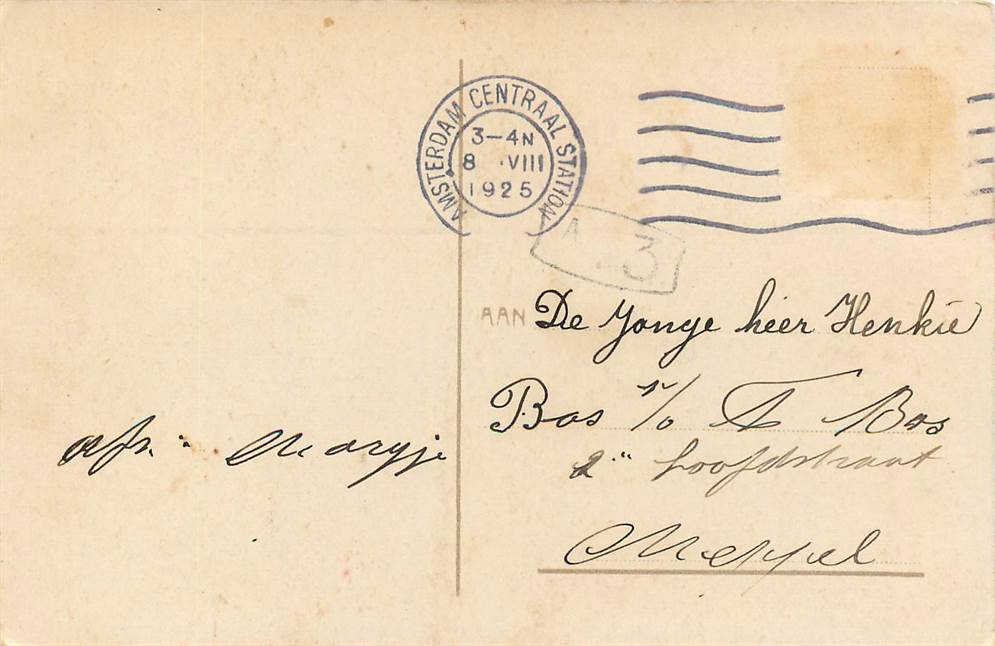 AMSTERDAM CENTRAAL STATION
3–4N
8 VIII
1925
A 3
AAN De Jonge heer Henkie
Bos p/o A Bos
2e hoofdstraat
Meppel
afz. Marijje